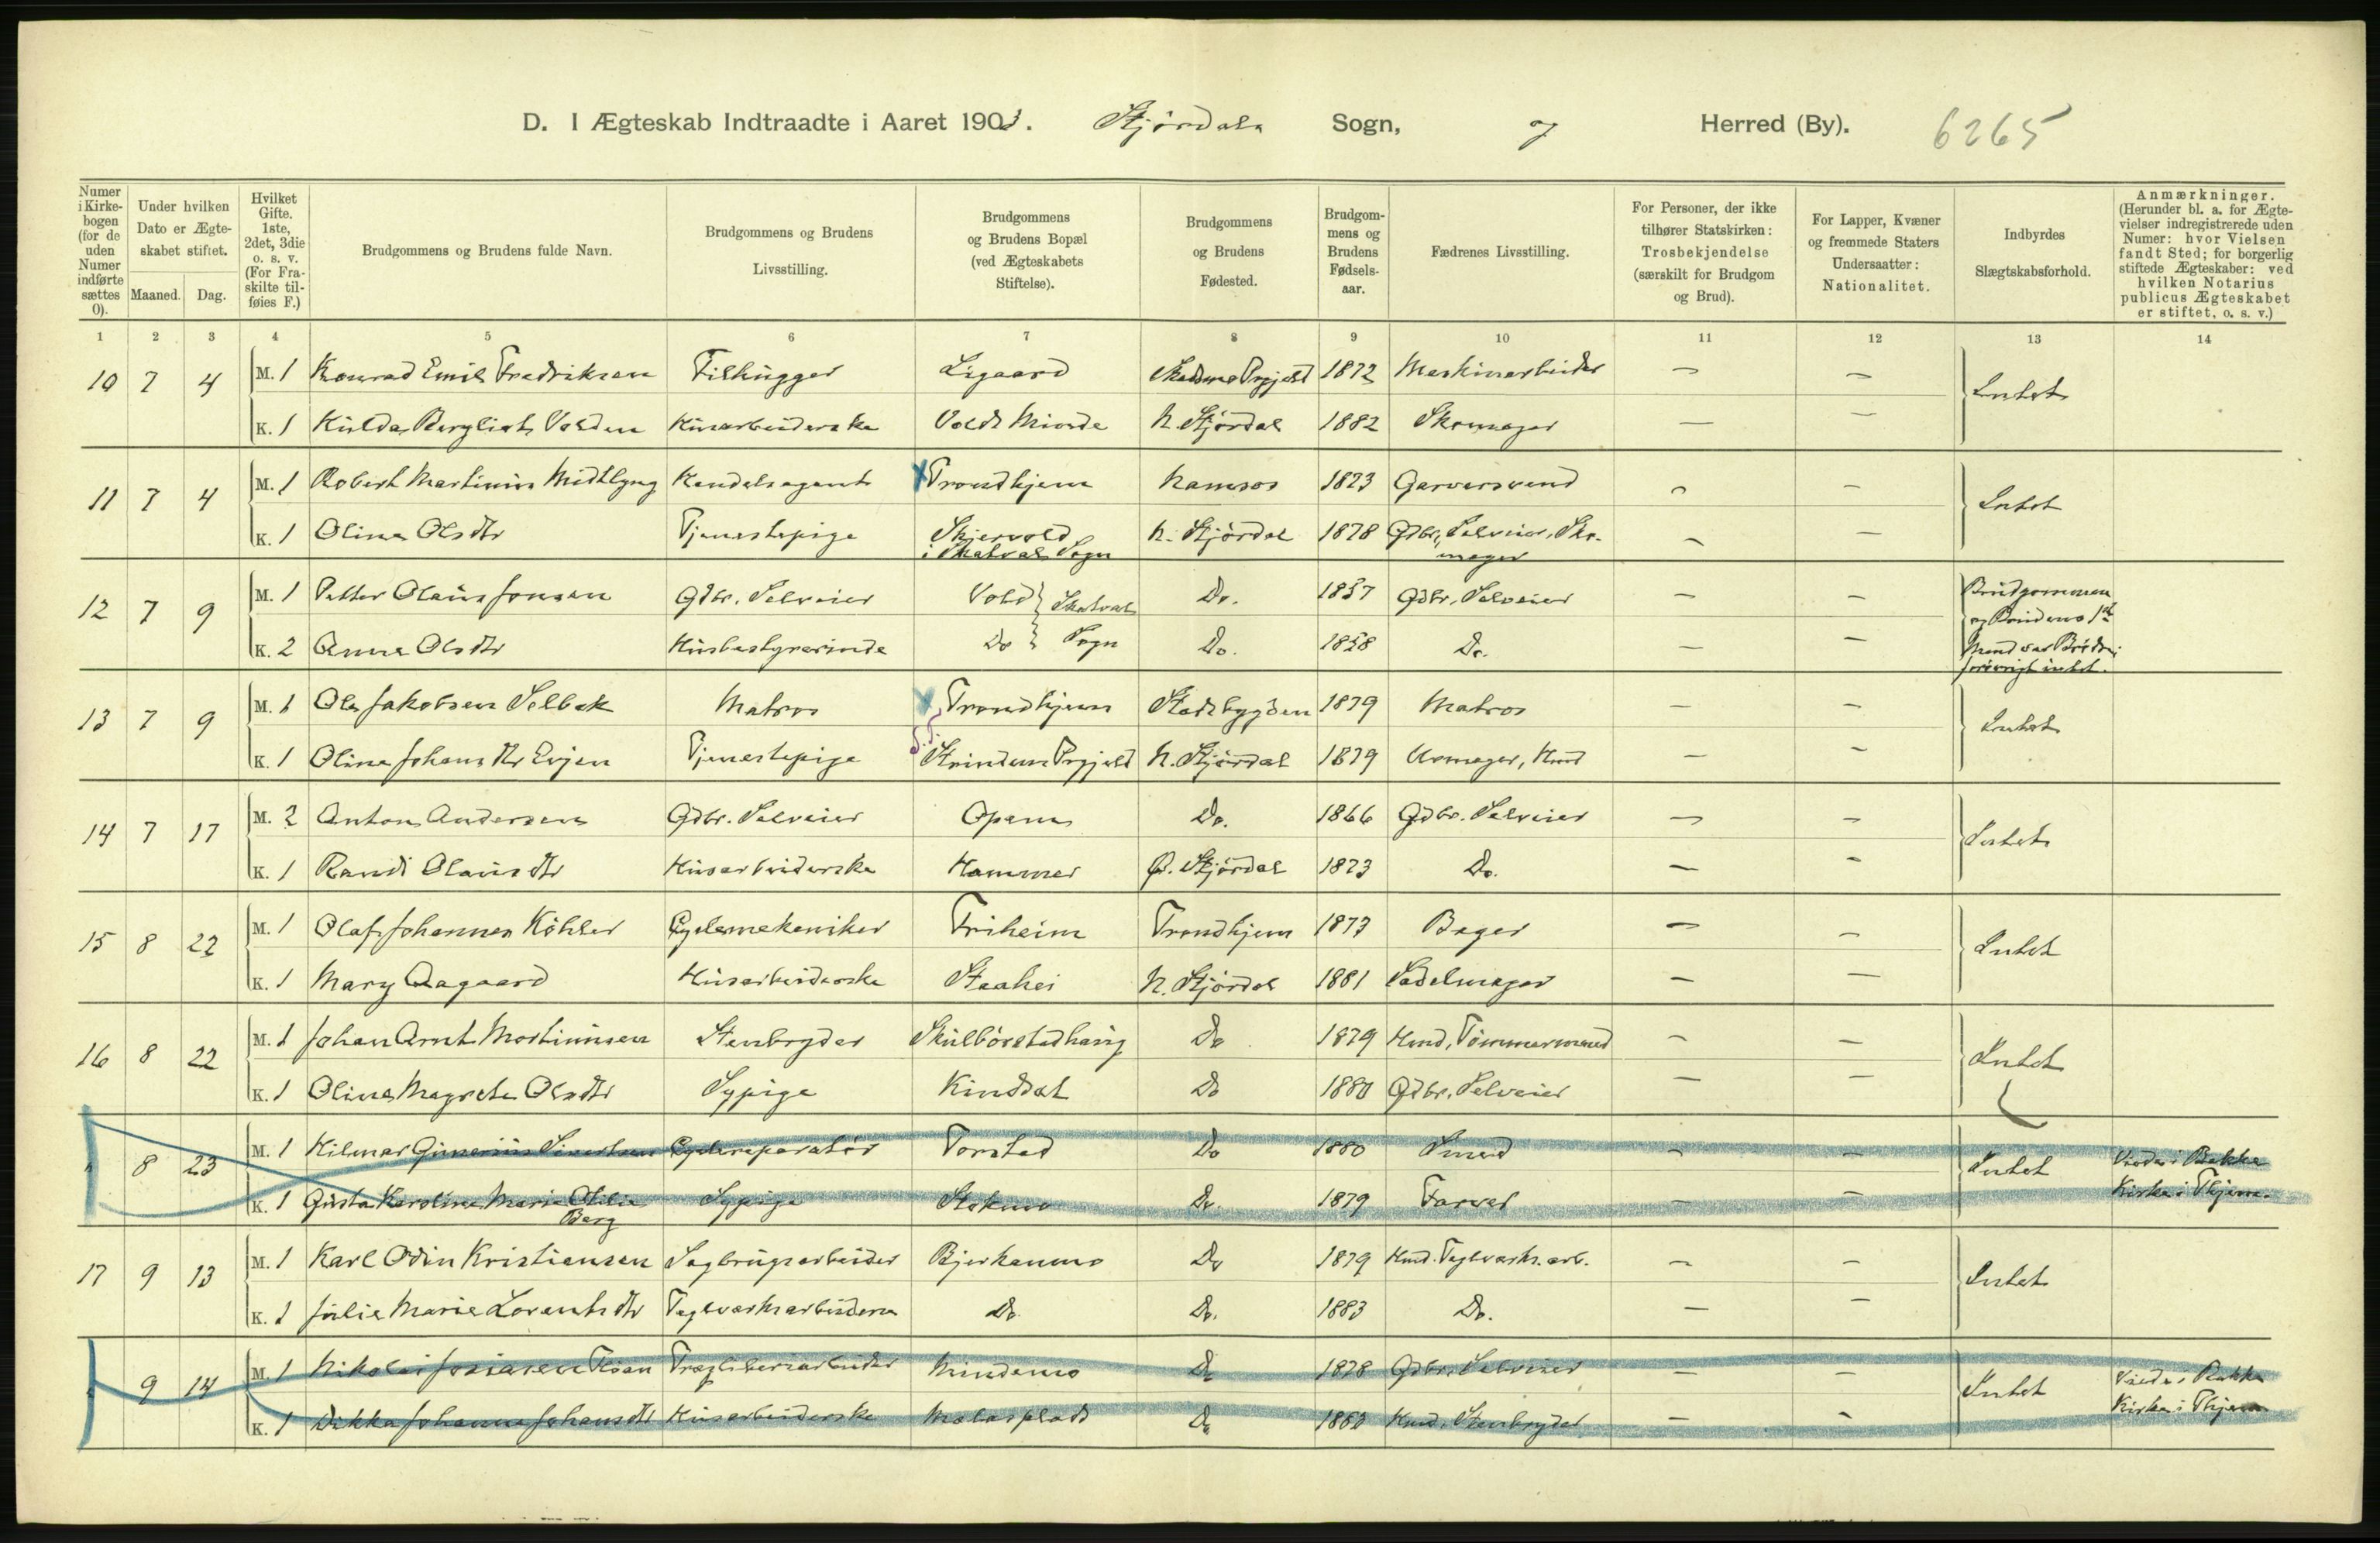 D. I Ægteskab Indtraadte i Aaret 1903. Stjørdals Sogn, og Herred (By). 6265
Numer i Kirkebogen (for de uden Numer indførte sættes 0).
Under hvilken Dato er Ægteskabet stiftet.
Maaned. Dag.
Hvilket Gifte. 1ste, 2det, 3die o. s. v. (For Fraskilte tilføies F.)
Brudgommens og Brudens fulde Navn.
Brudgommens og Brudens Livsstilling.
Brudgommens og Brudens Bopæl (ved Ægteskabets Stiftelse).
Brudgommens og Brudens Fødested.
Brudgommens og Brudens Fødselsaar.
Fædrenes Livsstilling.
For Personer, der ikke tilhører Statskirken: Trosbekjendelse (særskilt for Brudgom og Brud).
For Lapper, Kvæner og fremmede Staters Undersaatter: Nationalitet.
Indbyrdes Slægtskabsforhold.
Anmærkninger. (Herunder bl. a. for Ægtevielser indregistrerede uden Numer: hvor Vielsen fandt Sted; for borgerlig stiftede Ægteskaber: ved hvilken Notarius publicus Ægteskabet er stiftet, o. s. v.)
1 2 3 4 5 6 7 8 9 10 11 12 13 14
10 7 4 M. 1 Konrad Emil Fredriksen Filhugger Ligaard 1872 Maskinarbeider — — Intet
K. 1 Hulda Bergliot Volden Husarbeiderske N. Stjørdal 1882 Skomager — —
11 7 4 M. 1 Robert Martinius Midtlyng Handelsagent Trondhjem Namsos 1873 Garversvend — — Intet
K. 1 Olina Olsdtr Tjenestepige Skjervold i Skatval Sogn N. Stjørdal 1878 Gdbr, Selveier, Skomager — —
12 7 9 M. 1 Petter Olaus Jonsen Gdbr. Selveier Vold } Skatval Do. 1857 Gdbr, Selveier — — Brudgommen
K. 2 Anna Olsdtr Husbestyrerinde Do } Sogn Do. 1858 Do. — — og Brudens 1ste Mand var Brødre; forøvrigt intet.
13 7 9 M. 1 Ole Jakobsen Selbak Matros Trondhjem Stadsbygden 1879 Matros — — Intet
K. 1 Olina Johansdtr Evjen Tjenestepige Strinden Prgjeld N. Stjørdal 1879 Urmager, Hmd — —
14 7 17 M. 2 Anton Andersen Gdbr. Selveier Opem Do. 1866 Gdbr. Selveier — — Intet
K. 1 Randi Olausdtr Husarbeiderske Hammer Ø. Stjørdal 1873 Do. — —
15 8 22 M. 1 Olaf Johannes Köhler Cyclemekaniker Friheim Trondhjem 1873 Bager — — Intet
K. 1 Mary Aagaard Husarbeiderske N. Stjørdal 1881 Sadelmager — —
16 8 22 M. 1 Johan Arnt Martinussen Stenbryder Skulbørstadhaug Do 1879 Hmd, Tømmermand — — Intet
K. 1 Olina Magreta Olsdtr Sypige Do 1880 Gdbr, Selveier — —
8 23 M. 1 Hilmar Gunerius Sivertsen Cyclereparatør Torstad Do 1880 Smed — — Intet Viede i Bakke
K. 1 Gusta Karoline Marie Otilie Berg Sypige Stokmo Do. 1879 Farver — — Kirke i Thjem.
17 9 13 M. 1 Karl Odin Kristiansen Sagbrugsarbeider Bjerkanmo Do 1879 Hmd. Teglværks. arb. — — Intet
K. 1 Julie Marie Lorentsdtr Do. Do. 1883 Do. — —
9 14 M. 1 Nikolai Træsliberiarbeider Mindemo Do 1878 Gdbr, Selveier — — Intet Viede i Bakke
K. 1 Dikka Johanna Johansdtr Husarbeiderske Do 1882 Hmd, Stenbryder — — Kirke i Thjem